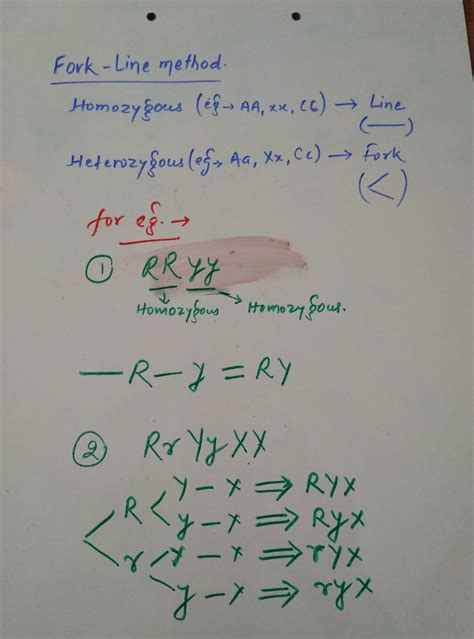 Fork-Line method.
Homozygous (eg→ AA, xx, CC) → Line
(—)
Heterozygous (eg→ Aa, Xx, Cc) → Fork
(<)
for eg. →
① RRyy
Homozygous Homozygous.
—R—y = RY
② RrYyXX
R < Y – x ⇒ RYX
y – x ⇒ RyX
r < Y – x ⇒ rYX
y – x ⇒ ryX